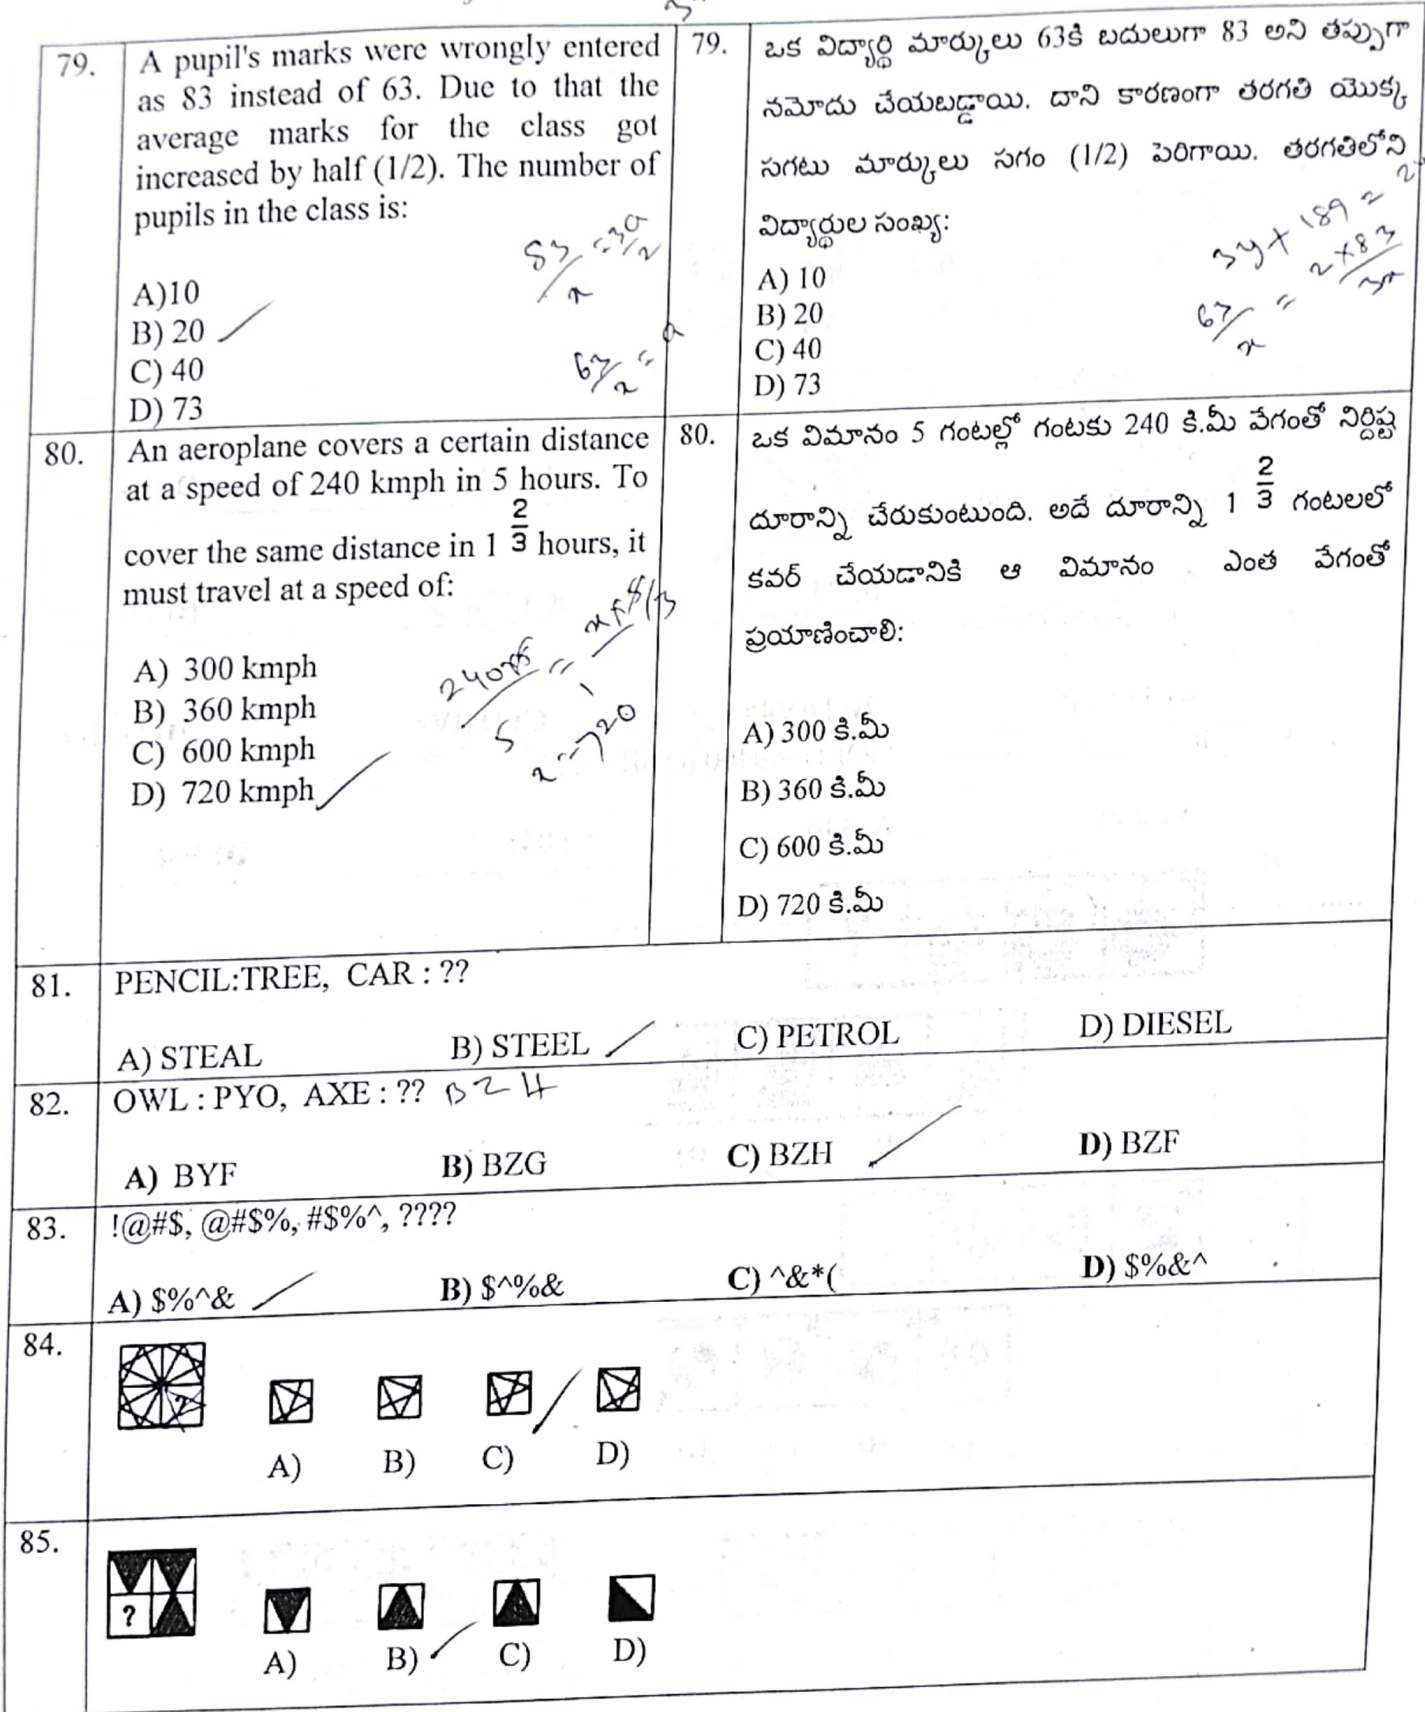 79.
A pupil's marks were wrongly entered
as 83 instead of 63. Due to that the
average marks for the class got
increased by half (1/2). The number of
pupils in the class is:
A)10
B) 20
C) 40
D) 73
83/x = 3a/2
63/x = a
79.
ఒక విద్యార్థి మార్కులు 63కి బదులుగా 83 అని తప్పుగా
నమోదు చేయబడ్డాయి. దాని కారణంగా తరగతి యొక్క
సగటు మార్కులు సగం (1/2) పెరిగాయి. తరగతిలోని
విద్యార్థుల సంఖ్య:
A) 10
B) 20
C) 40
D) 73
3y+189=2
63/x = 2×83/3x
80.
An aeroplane covers a certain distance
at a speed of 240 kmph in 5 hours. To
cover the same distance in 1 2/3 hours, it
must travel at a speed of:
A) 300 kmph
B) 360 kmph
C) 600 kmph
D) 720 kmph
x=720
80.
ఒక విమానం 5 గంటల్లో గంటకు 240 కి.మీ వేగంతో నిర్దిష్ట
దూరాన్ని చేరుకుంటుంది. అదే దూరాన్ని 1 2/3 గంటలలో
కవర్ చేయడానికి ఆ విమానం ఎంత వేగంతో
ప్రయాణించాలి:
A) 300 కి.మీ
B) 360 కి.మీ
C) 600 కి.మీ
D) 720 కి.మీ
81. PENCIL:TREE, CAR : ??
A) STEAL B) STEEL C) PETROL D) DIESEL
82. OWL : PYO, AXE : ?? BZH
A) BYF B) BZG C) BZH D) BZF
83. !@#$, @#$%, #$%^, ????
A) $%^& B) $^%& C) ^&*( D) $%&^
84.
?
A) B) C) D)
85.
?
A) B) C) D)